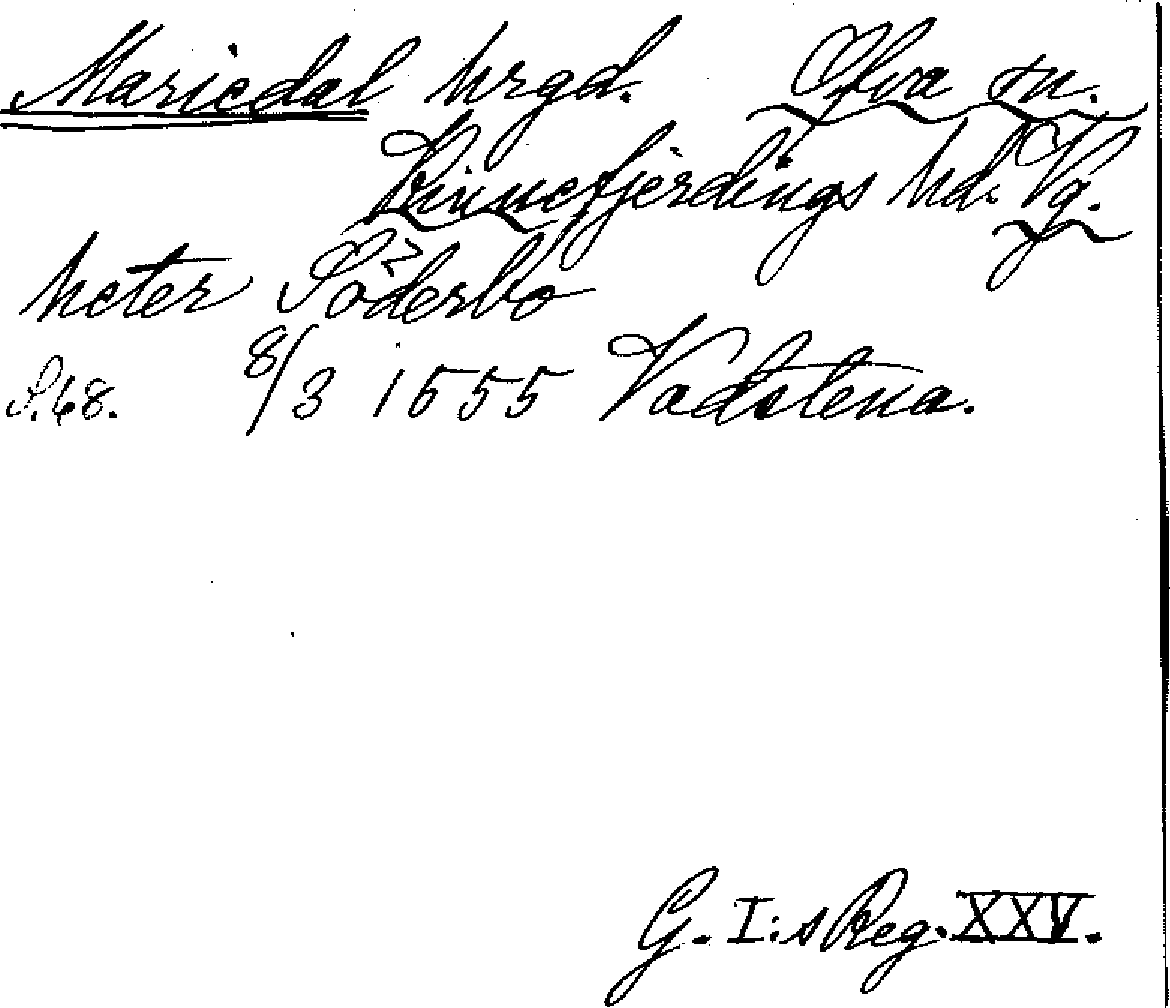 Mariedal hrgd. Ova sn.
Kinnefjerdings hd. Vg.
heter Söderbo
S. 68. 8/3 1555 Vadstena.
G. I:s Reg. XXV.